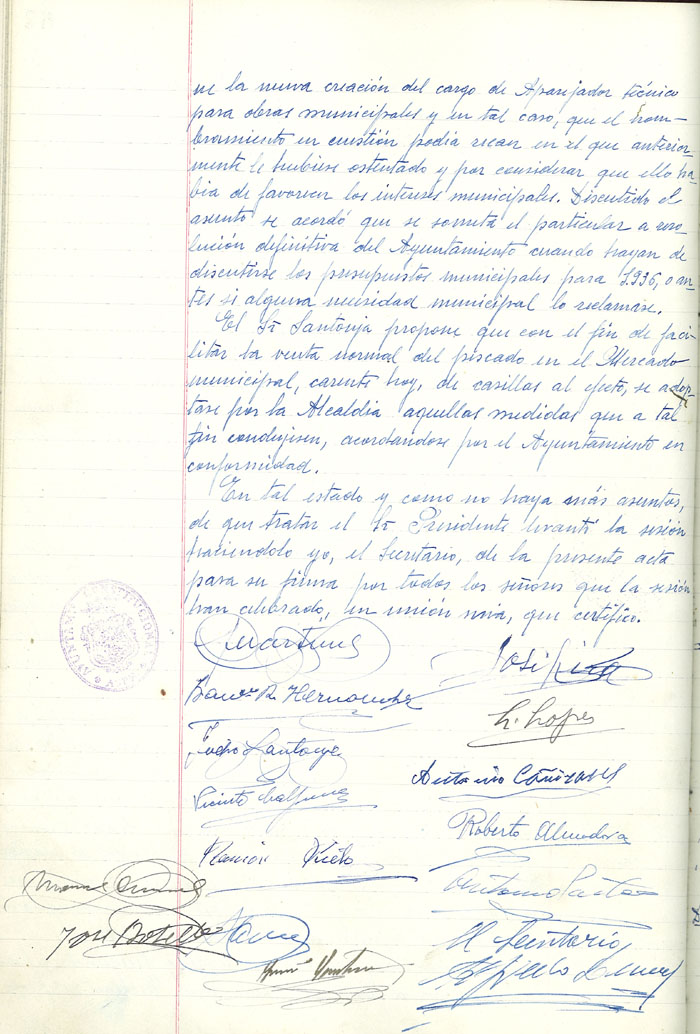 ne la nueva creación del cargo de Aparejador técnico
para obras municipales y en tal caso, que el nom-
bramiento en cuestión podia recaer en el que anterior-
mente le hubiese ostentado y por considerar que ello ha-
bia de favorecer los intereses municipales. Discutido el
asunto se acordó que se someta el particular a reso-
lución definitiva del Ayuntamiento cuando hayan de
discutirse los presupuestos municipales para 1.936, o an-
tes si alguna necesidad municipal lo reclamase.
El Sr Santonja propone que con el fin de faci-
litar la venta normal del pescado en el Mercado
municipal, carente hoy, de casillas al efecto, se adop-
tase por la Alcaldia aquellas medidas que a tal
fin condujesen, acordandose por el Ayuntamiento en
conformidad.
En tal estado y como no haya más asuntos,
de que tratar el Sr Presidente levantó la sesión
haciendolo yo, el Secretario, de la presente acta
para su firma por todos los señores que la sesión
han celebrado, en unión mia, que certifico.
Martinez
José
R. Hernandez
L. Lopez
Pedro Santonja
Antonio Cañizares
Vicente
Roberto Almodovar
Ramón
Antonio Pastor
José Botella
El Secretario
AYUNTAMIENTO CONSTITUCIONAL